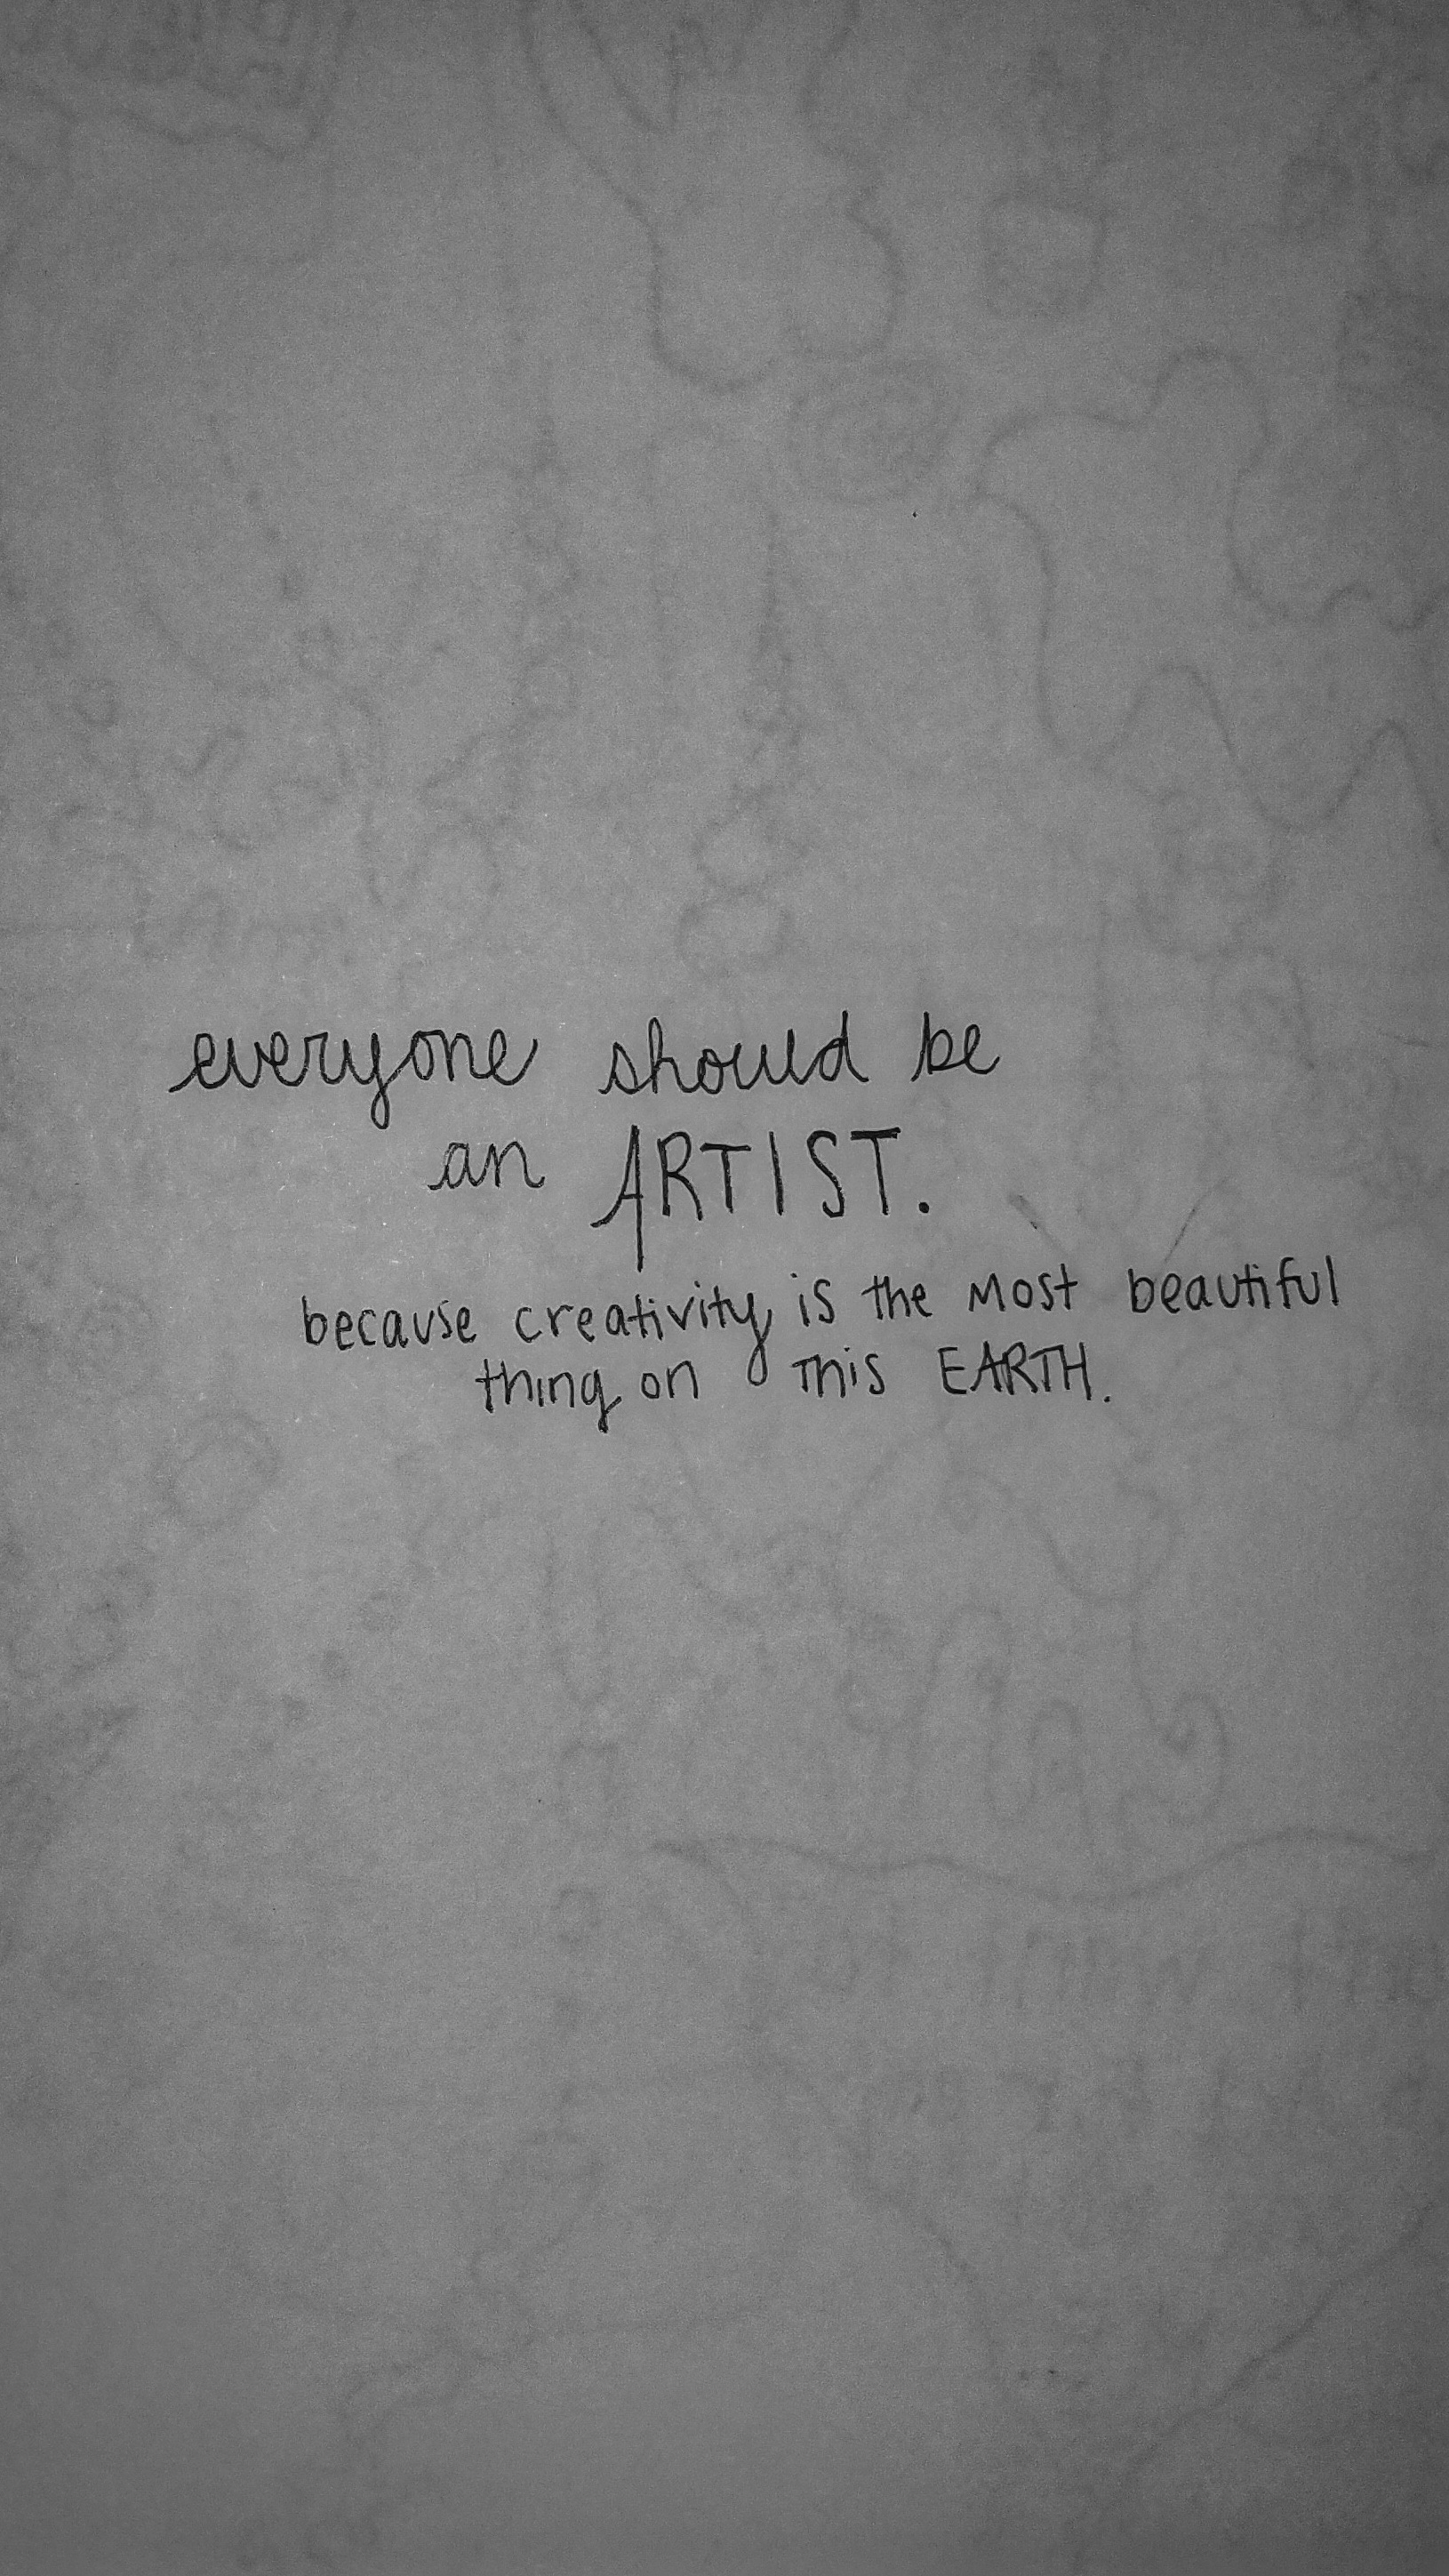 everyone should be
an ARTIST.
because creativity is the most beautiful
thing on this EARTH.